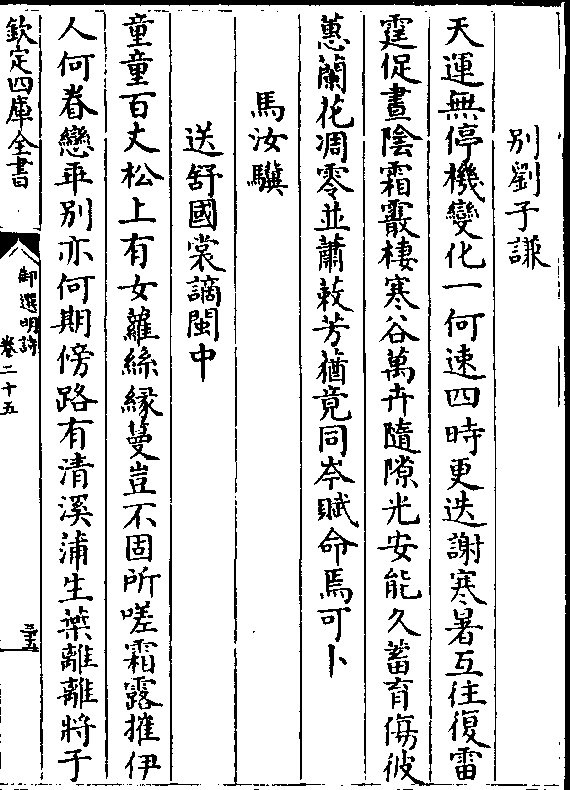 別劉子謙
天運無停機變化一何速四時更迭謝寒暑互往復雷
霆促晝陰霜霰棲寒谷萬卉隨隙光安能久蓄育傷彼
蕙蘭花凋零並蕭蔌芳蕕竟同岑賦命焉可卜
馬汝驥
送舒國裳謫閩中
童童百丈松上有女蘿絲縁蔓豈不固所嗟霜露摧伊
人何眷戀乖別亦何期傍路有清溪蒲生葉離離將子
欽定四庫全書
御選明詩
卷二十五
三五